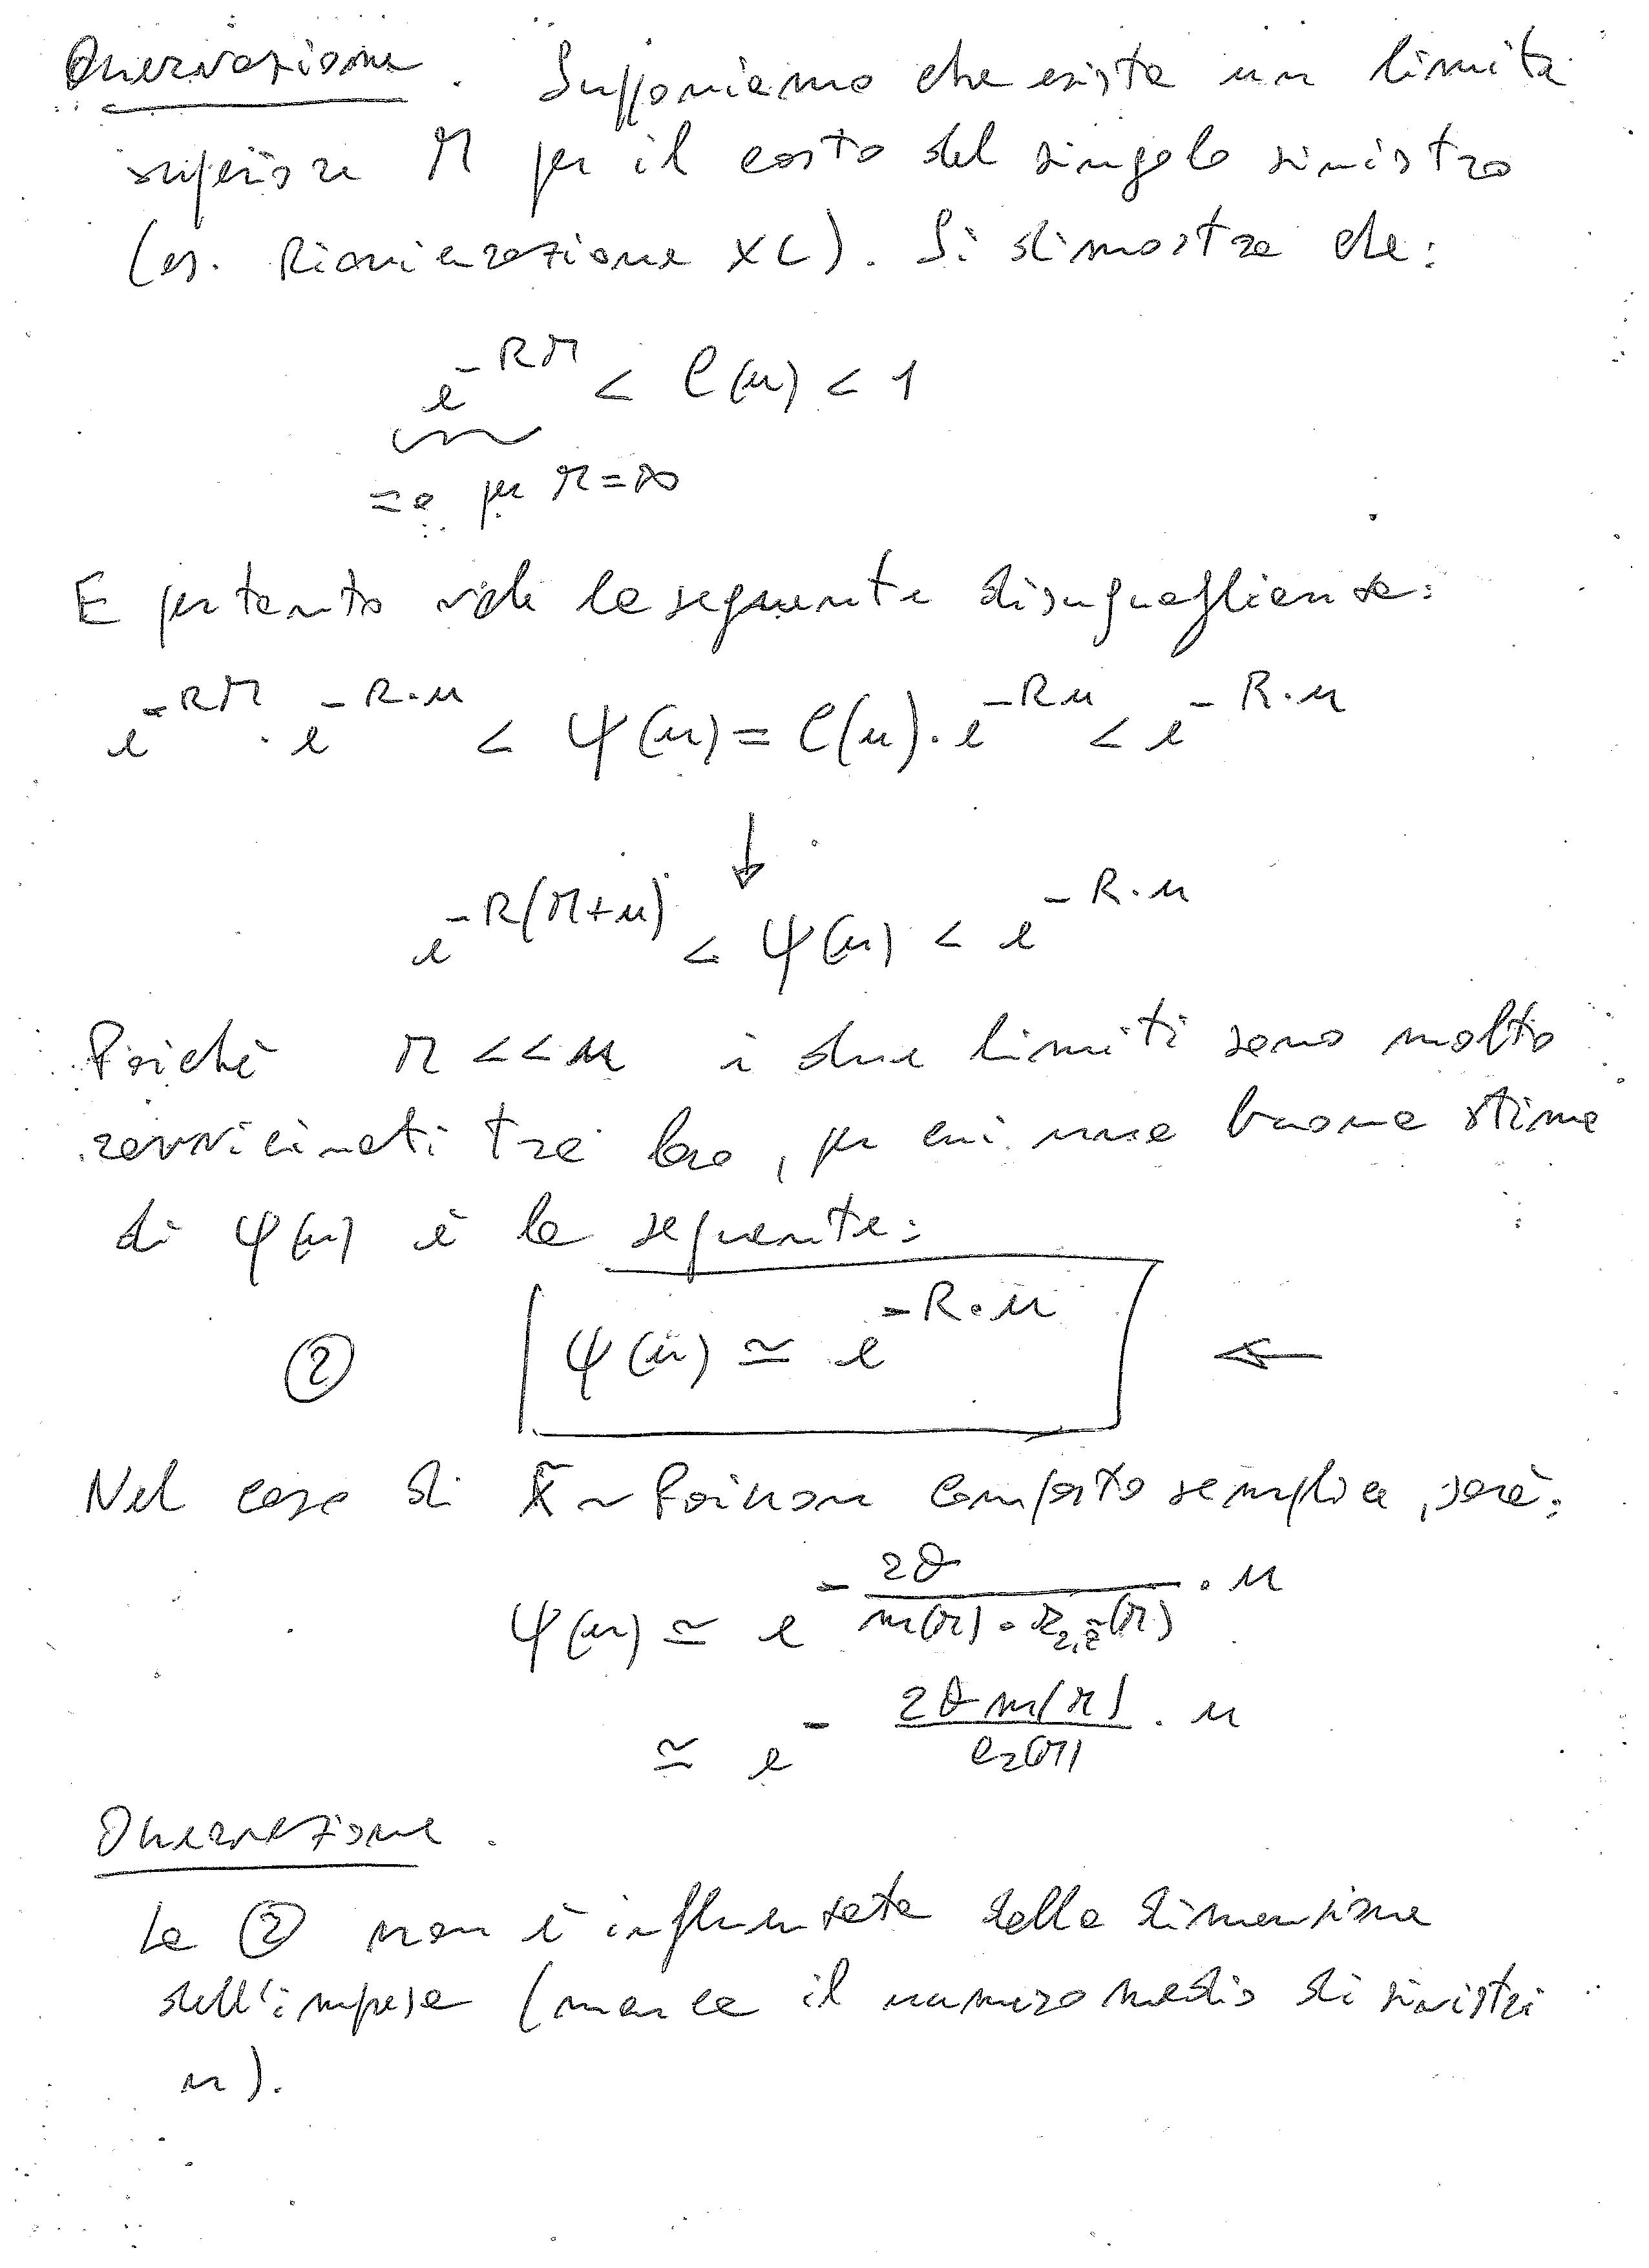 Osservazione. Supponiamo che esista un limite
superiore M per il costo del singolo sinistro
(es. Riassicurazione XL). Si dimostra che:
e^{-RM} < C(u) < 1
=0 per M=∞
E pertanto vale la seguente disuguaglianza:
e^{-RM} · e^{-R·u} < Ψ(u) = C(u) · e^{-Ru} < e^{-R·u}
↓
e^{-R(M+u)} < Ψ(u) < e^{-R·u}
Poichè M << u i due limiti sono molto
ravvicinati tra loro, per cui una buona stima
di Ψ(u) è la seguente:
② Ψ(u) ≃ e^{-R·u} ←
Nel caso di X̃ ~ Poisson Composto semplice, sarà:
Ψ(u) ≃ e^{-\frac{2θ}{m(M) · r_{2,\tilde{Z}}(M)} · u}
≃ e^{-\frac{2θ m(M)}{a_2(M)} · u}
Osservazione.
La ② non è influenzata dalla dimensione
dell'impresa (manca il numero medio di sinistri
n).